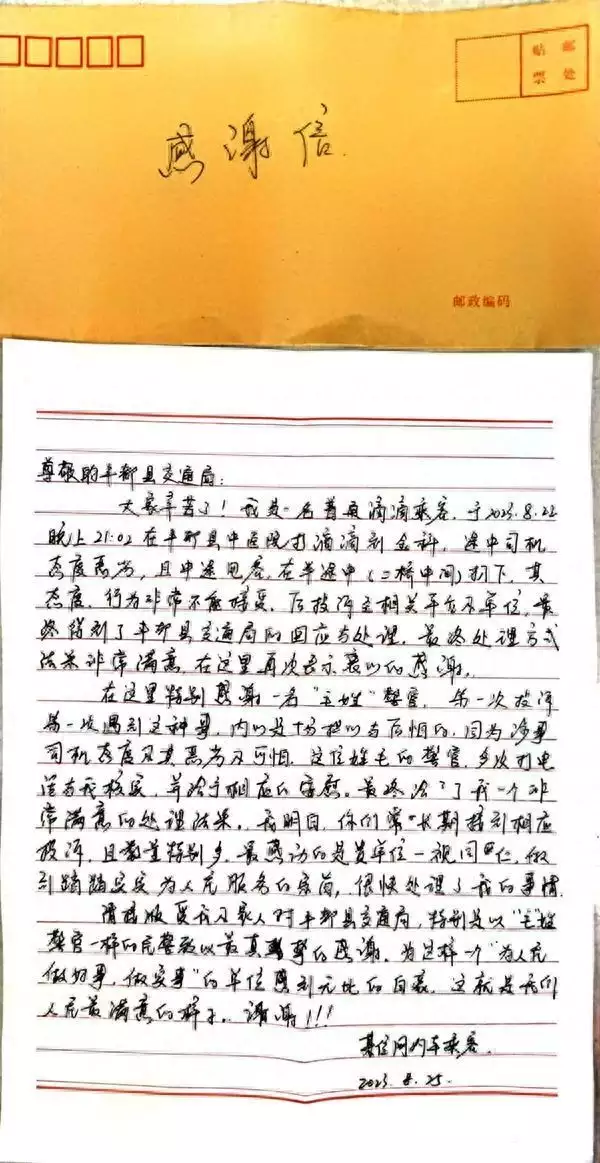 贴 邮
票 处
感谢信
邮政编码
尊敬的平都县交通局:
大家辛苦了!我是一名普通滴滴乘客,于2023.8.22
晚上21:02在平都县中医院打滴滴到金科,途中司机
态度恶劣,且中途甩客,在半途中(二桥中间)扔下,其
态度、行为非常不能接受,后投诉至相关平台及单位,最
终得到了平都县交通局的回应与处理,最终处理方式
结果非常满意,在这里再次表示衷心的感谢。
在这里特别感谢一名"毛姓"警官,第一次投诉
第一次遇到这种事,内心是十分担心与后怕的,因为涉事
司机态度及其恶劣及可怕,这位姓毛的警官,多次打电
话与我核实,并给予相应的安慰。最终给了我一个非
常满意的处理结果。我明白,你们常长期接到相应
投诉,且数量特别多,最感动的是贵单位一视同仁,做
到踏踏实实为人民服务的宗旨,很快处理了我的事情。
请接受我及家人对平都县交通局,特别是以"毛"姓
警官一样的民警致以最真挚的感谢。为这样一个"为人民
做好事,做实事"的单位感到无比的自豪。这就是我们
人民最满意的样子。谢谢!!!
某位网约车乘客.
2023.8.25.